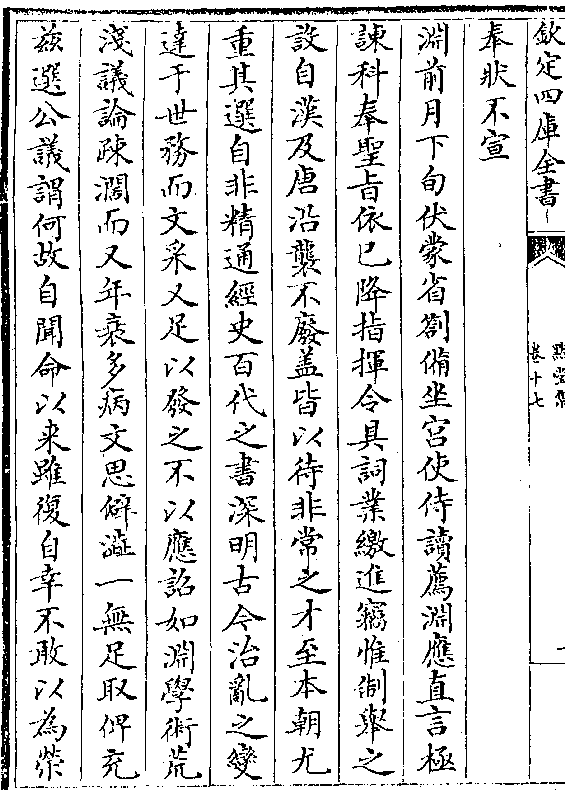 欽定四庫全書
默堂集
卷十七
奉狀不宣
淵前月下旬伏蒙省劄備坐宫使侍讀薦淵應直言極
諫科奉聖旨依已降指揮令具詞業繳進竊惟制舉之
設自漢及唐沿襲不廢盖皆以待非常之才至本朝尤
重其選自非精通經史百代之書深明古今治亂之變
達于世務而文采又足以發之不以應詔如淵學術荒
淺議論疎濶而又年衰多病文思僻澁一無足取俾充
兹選公議謂何故自聞命以来雖復自幸不敢以為榮